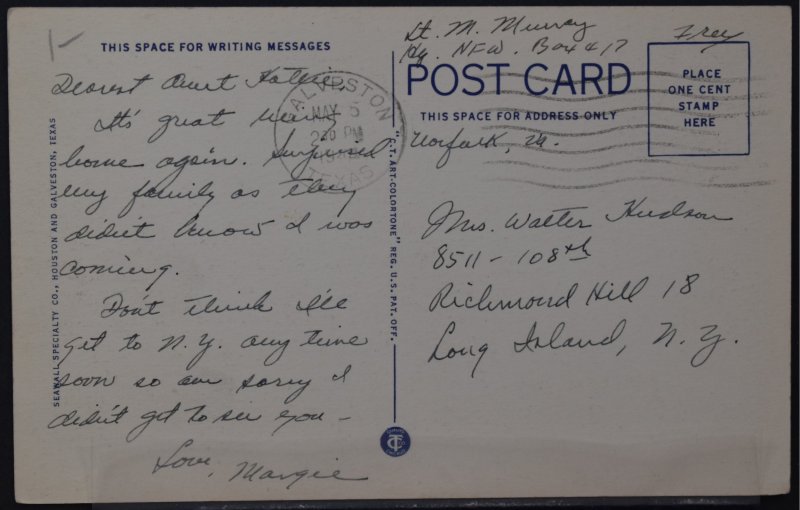 THIS SPACE FOR WRITING MESSAGES
Dearest Aunt
It's great being
home again. Surprised
my family as they
didn't know I was
coming.
Don't think I'll
get to N.Y. any time
soon so am sorry I
didn't get to see you -
Love, Margie
GALVESTON
MAY 5
2 30 PM
TEXAS
SEAWALL SPECIALTY CO., HOUSTON AND GALVESTON, TEXAS
"C.T. ART-COLORTONE" REG. U.S. PAT. OFF.
Lt. M. Murray
Hq. NEW. Box 417
Free
POST CARD
THIS SPACE FOR ADDRESS ONLY
Norfolk, Va.
PLACE
ONE CENT
STAMP
HERE
Mrs. Walter Hudson
8511 - 108th
Richmond Hill 18
Long Island, N.Y.